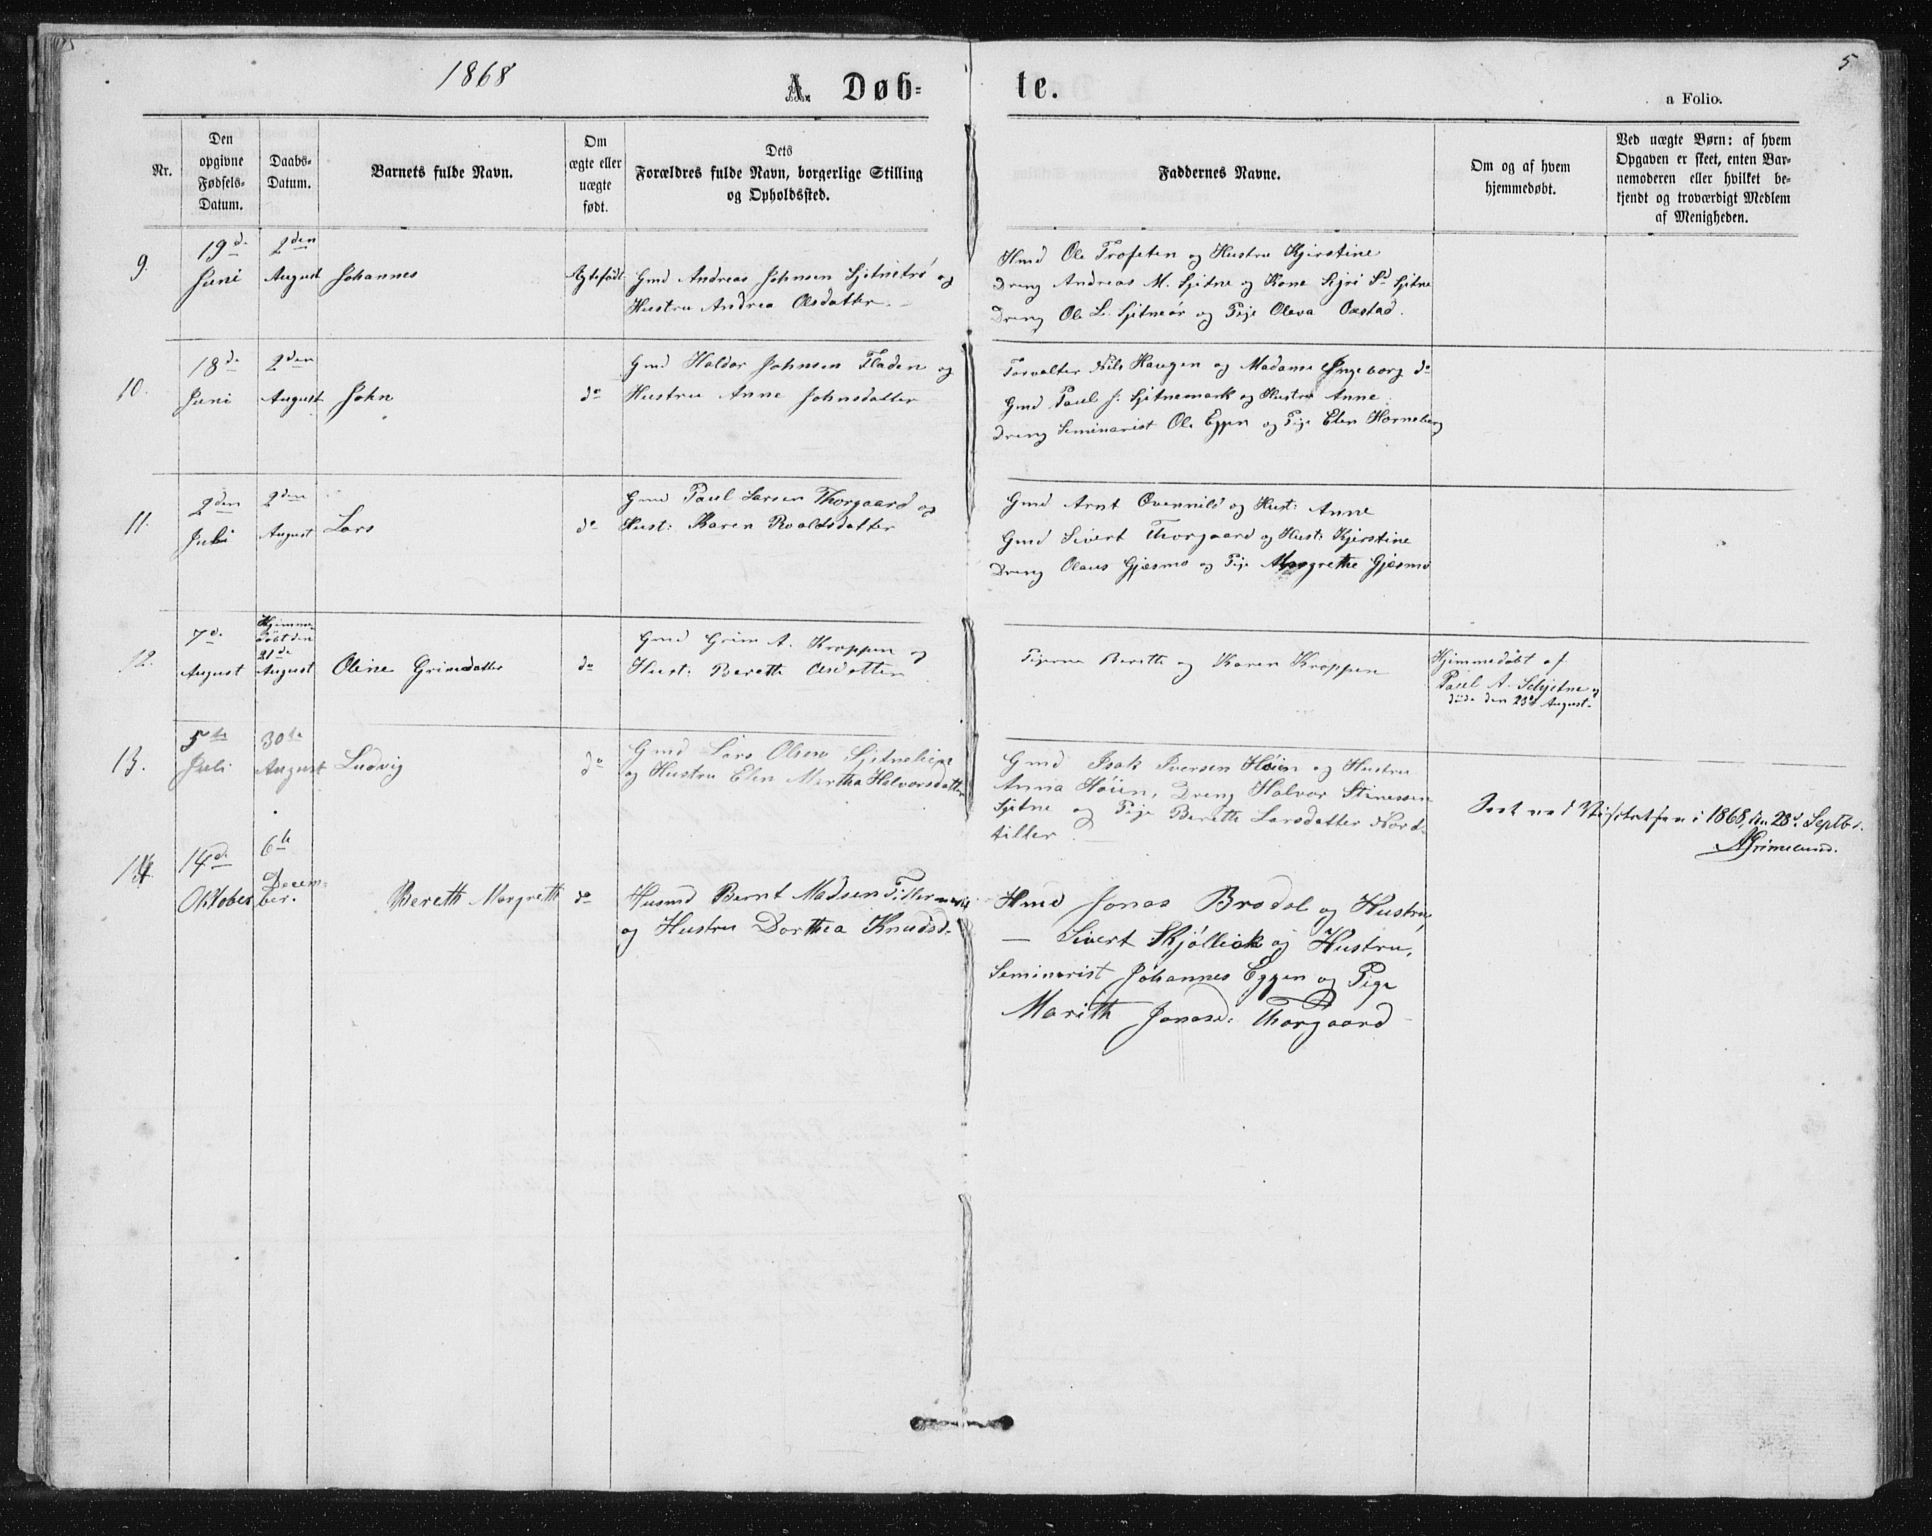 1868
5
A. Døb-
te.
a Folio.
Nr.
Den
opgivne
Fødsels-
Datum.
Daabs-
Datum.
Barnets fulde Navn.
Om
ægte eller
uægte
født.
Dets
Forældres fulde Navn, borgerlige Stilling
og Opholdssted.
Faddernes Navne.
Om og af hvem
hjemmedøbt.
Ved uægte Børn: af hvem
Opgaven er skeet, enten Bar-
nemoderen eller hvilket be-
kjendt og troværdigt Medlem
af Menigheden.
9.
19de
Juni
2den
August
Johannes
Ægtefødt
Gmd Andreas Johnsen Sjetnetrø og
Hustru Andrea Olsdatter.
Hmd Ole Trofeten og Hustru Kjerstine
Dreng Andreas M. Sjetne og Kone Sigri Sd Sjetne
Dreng Ole L. Sjetneør og Pige Oleva Oxstad.
10.
18de
Juni
2den
August
John
do
Gmd Haldor Johnsen Fladen og
Hustru Anne Johnsdatter
Forvalter Nils Haugen og Madame Ingeborg do
Gmd Paul J. Sjetnemark og Hustru Anne.
Dreng Seminarist Ole Eggen og Pige Elen Horneberg
11.
2den
Juli
2den
August
Lars
do
Gmd Paul Larsen Thorgaard og
Hust: Karen Roaldsdatter
Gmd Arnt Overvild og Hust: Anne
Gmd Sivert Thorgaard og Hust: Kjerstine
Dreng Olaus Gjæsmo og Pige Margrethe Gjæsmo
12.
7de
August
Hjemme-
døbt den
21de
August
Oline Grimsdatter
do
Gmd Grim A. Kroppen og
Hust: Berethe Olsdatter
Pigerne Berethe og Karen Kroppen
Hjemmedøbt af
Paul A. Schjetne og
døde den 23de August.
13.
5te
Juli
30te
August
Ludvig
do
Gmd Lars Olsen Sjetnehign
og Hustru Elen Martha Halvorsdatter
Gmd Isak Iversen Høien og Hustru
Anna Høien, Dreng Halvor Stinessen
Sjetne og Pige Berethe Larsdatter Nord-
tiller
Seet ved Visitatsen i 1868, den 28d. Septbr.
AGrimelund.
14.
14de
Oktober
6te
Decem-
ber.
Bereth Margreth
do
Husmd Bernt Madsen Tillermarki
og Hustru Dorthea Knudsd.
Hmd Jonas Brødol og Hustru,
— Sivert Kjøllick og Hustru,
Seminarist Johannes Eggen og Pige
Marith Jonasd: Thorgaard